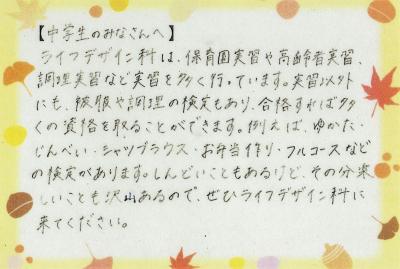 【中学生のみなさんへ】
ライフデザイン科は、保育園実習や高齢者実習、
調理実習など実習を多く行っています。実習以外
にも、被服や調理の検定もあり、合格すれば多
くの資格を取ることができます。例えば、ゆかた・
じんべい・シャツブラウス・お弁当作り・フルコースなど
の検定があります。しんどいこともあるけど、その分楽
しいことも沢山あるので、ぜひライフデザイン科に
来てください。